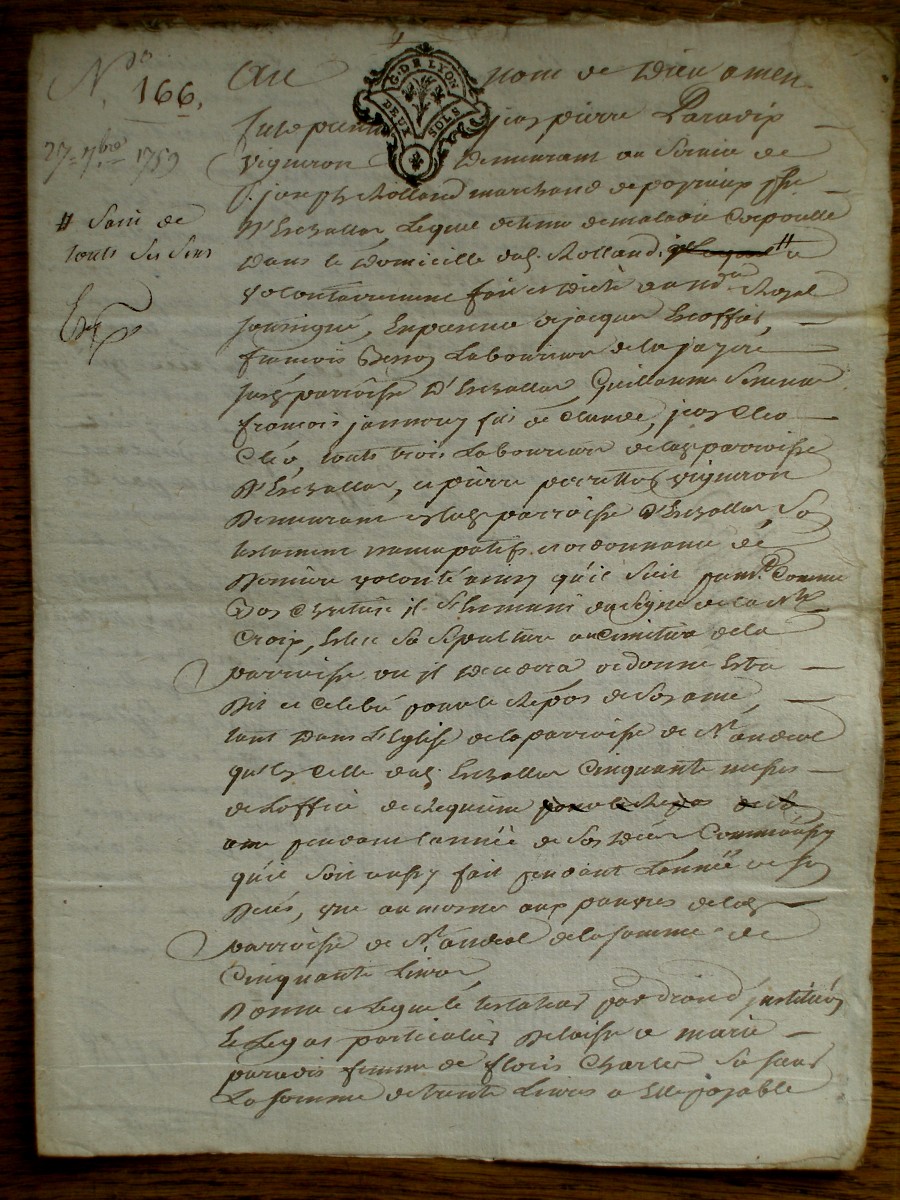 N° 166.
27 7bre 1759
# Sain de
touts ses sens
G. DE LYON
DEUX SOLS
Au nom de Dieu amen
fut present jean pierre Paradis
vigneron Demeurant au Service de
s. joseph Rolland marchand de psse
D'Eschallas, Lequel detenu de maladie Corporelle
Dans le Domicille dud. Rolland # a
volontairement fait et Dicté au nre Royal
soussigné, En presence de jacques Escoffier,
françois Laboureur de la
susd. parroisse D'Eschallas Guillaume
françois jannouy fils de Claude, jean Cleo
Cleo, touts trois Laboureurs de lad. parroisse
D'Eschallas, et pierre vigneron
Demeurant en lad. parroisse D'Eschallas So
testament nuncupatif et ordonnance de
Derniere volonté ainsy qu'il Suit premt. Comme
bon Chretien il S'est muni du Signe de la Ste
Croix, Eslit Sa Sepulture au Cimetiere de la
parroisse ou il Decedera ordonne Estre
Dit et Celebré pour le Repos de Son ame,
tant Dans L'Eglise de la parroisse de St andeol
qu'En Celle dud. Eschallas Cinquante messes
de L'office de Requiem pour le Repos de So
ame pendant L'année de Son Deces Comme aussy
qu'il Soit aussy fait pendant L'année de So
Deces, une aumosne aux pauvres de lad.
parroisse de St andeol de la Somme de
Cinquante Livres
Donne et Legue le testateur par droit d'institution
et Legat particulier Delaisse a marie
paradis femme de floris Charles Sa Soeur
La Somme de trente Livres a Elle payable